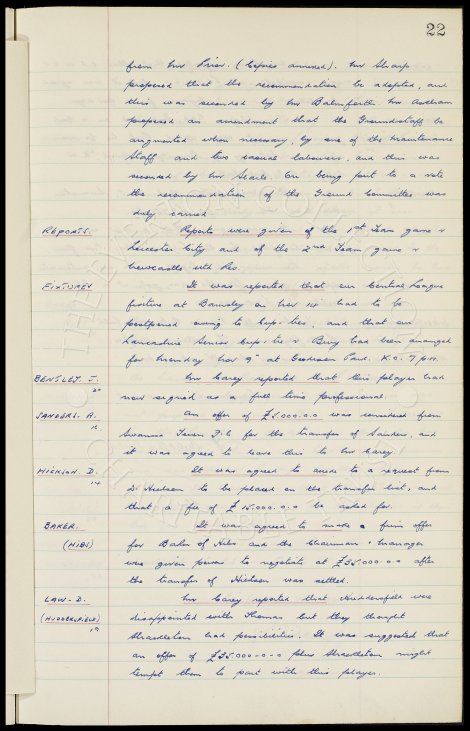 22
from Mr Prior. (Copies annexed). Mr Sharp
proposed that the recommendation be adopted, and
this was seconded by Mr Balmforth. Mr Askham
proposed an amendment that the Groundstaff be
augmented when necessary, by one of the Maintenance
Staff and two casual labourers, and this was
seconded by Mr Searle. On being put to a vote
the recommendation of the Ground Committee was
duly carried
REPORTS. Reports were given of the 1st Team game v
Leicester City and of the 2nd Team game v
Newcastle Utd Res.
FIXTURES It was reported that our Central League
fixture at Barnsley on Nov 14 had to be
postponed owing to Cup-ties, and that our
Lancashire Senior Cup-tie v Bury had been arranged
for Monday Nov 9th at Goodison Park. K.O. 7 p.m.
BENTLEY. J. Mr Carey reported that this player had
20 now signed as a full time professional.
SANDERS. A. An offer of £5,000.0.0 was considered from
Swansea Town F.C for the transfer of Sanders, and
it was agreed to leave this to Mr Carey.
HICKSON. D. It was agreed to accede to a request from
14 D. Hickson to be placed on the transfer list, and
that a fee of £15.000.0.0 be asked for.
BAKER. It was agreed to make a firm offer
(HIBS) for Baker of Hibs and the Chairman & Manager
were given power to negotiate at £35.000.0.0 after
the transfer of Hickson was settled.
LAW. D. Mr Carey reported that Huddersfield were
(HUDDERSFIELD) disappointed with Thomas but they thought
19 Shackleton had possibilities. It was suggested that
an offer of £35.000-0-0 plus Shackleton might
tempt them to part with this player.